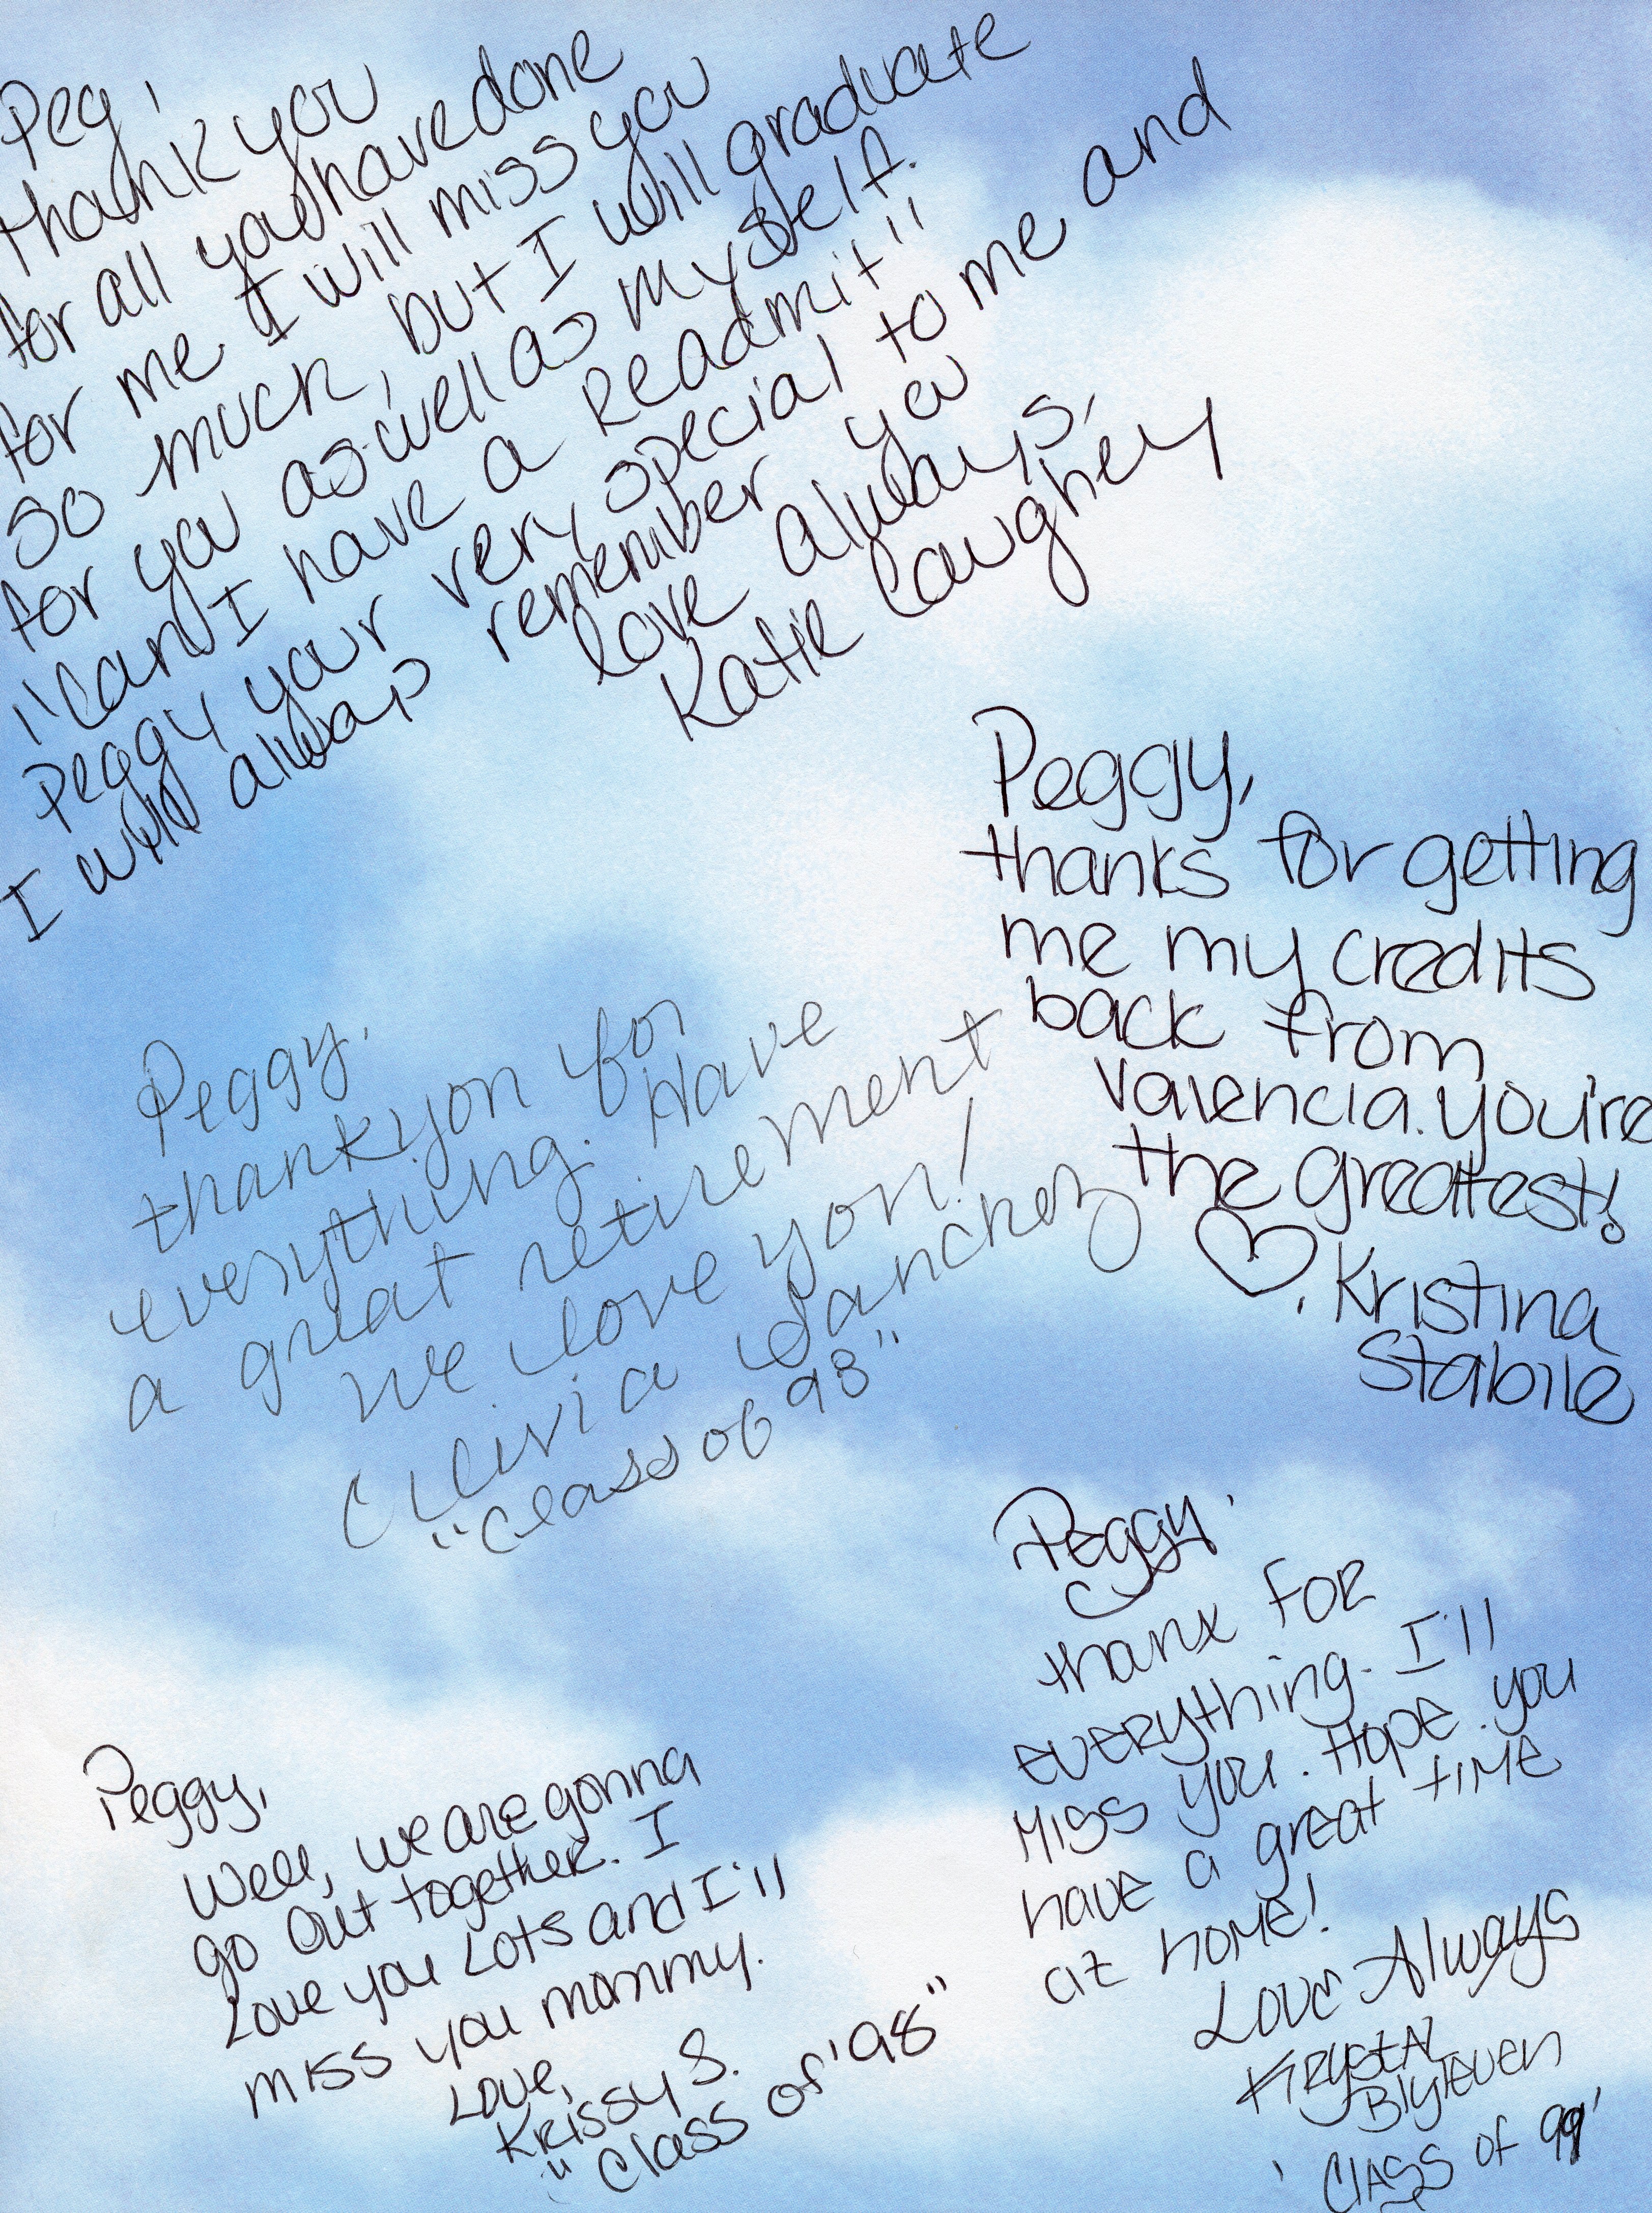 Peg,
thank you
for all you have done
for me. I will miss you
so much, but I will graduate
for you as well as myself.
"Can I have a Readmit"
Peggy your very special to me and
I will always remember you
love always,
Katie Caughey
Peggy,
thanks for getting
me my credits
back from
Valencia. you're
the greatest!
♡, Kristina
Stabile
Peggy,
thank you for
everything. Have
a great retirement
We love you!
Olivia Sanchez
"Class of 98"
Peggy,
thanx for
everything. I'll
Miss you. Hope you
have a great time
at home!
Love Always
Krystal
Blyleven
'Class of 99'
Peggy,
Well, we are gonna
go out together. I
Love you Lots and I'll
miss you mommy.
Love,
Krissy S.
"Class of '98"